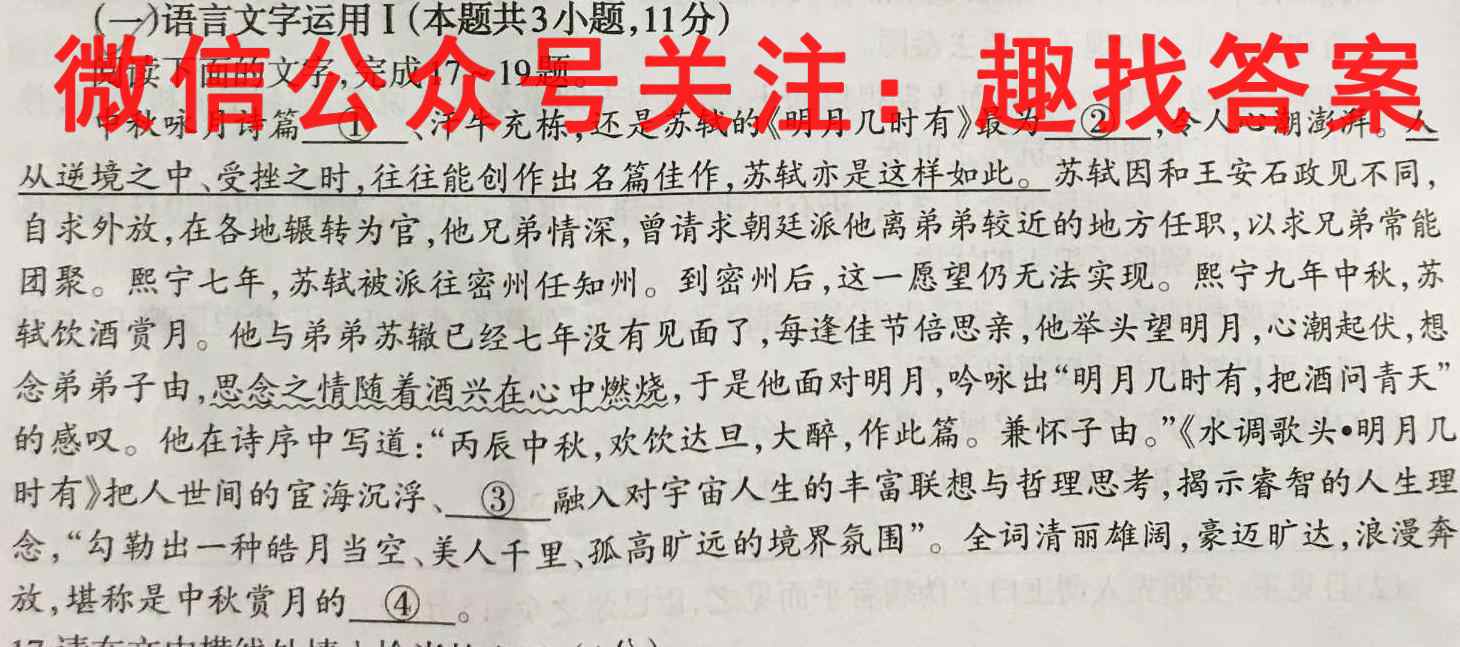 (一)语言文字运用Ⅰ(本题共3小题,11分)
微信公众号关注：趣找答案
阅读下面的文字,完成17~19题。
中秋咏月诗篇 ① 、汗牛充栋,还是苏轼的《明月几时有》最为 ② ,令人心潮澎湃。人
从逆境之中、受挫之时,往往能创作出名篇佳作,苏轼亦是这样如此。苏轼因和王安石政见不同,
自求外放,在各地辗转为官,他兄弟情深,曾请求朝廷派他离弟弟较近的地方任职,以求兄弟常能
团聚。熙宁七年,苏轼被派往密州任知州。到密州后,这一愿望仍无法实现。熙宁九年中秋,苏
轼饮酒赏月。他与弟弟苏辙已经七年没有见面了,每逢佳节倍思亲,他举头望明月,心潮起伏,想
念弟弟子由,思念之情随着酒兴在心中燃烧,于是他面对明月,吟咏出“明月几时有,把酒问青天”
的感叹。他在诗序中写道:“丙辰中秋,欢饮达旦,大醉,作此篇。兼怀子由。”《水调歌头•明月几
时有》把人世间的宦海沉浮、 ③ 融入对宇宙人生的丰富联想与哲理思考,揭示睿智的人生理
念,“勾勒出一种皓月当空、美人千里、孤高旷远的境界氛围”。全词清丽雄阔,豪迈旷达,浪漫奔
放,堪称是中秋赏月的 ④ 。